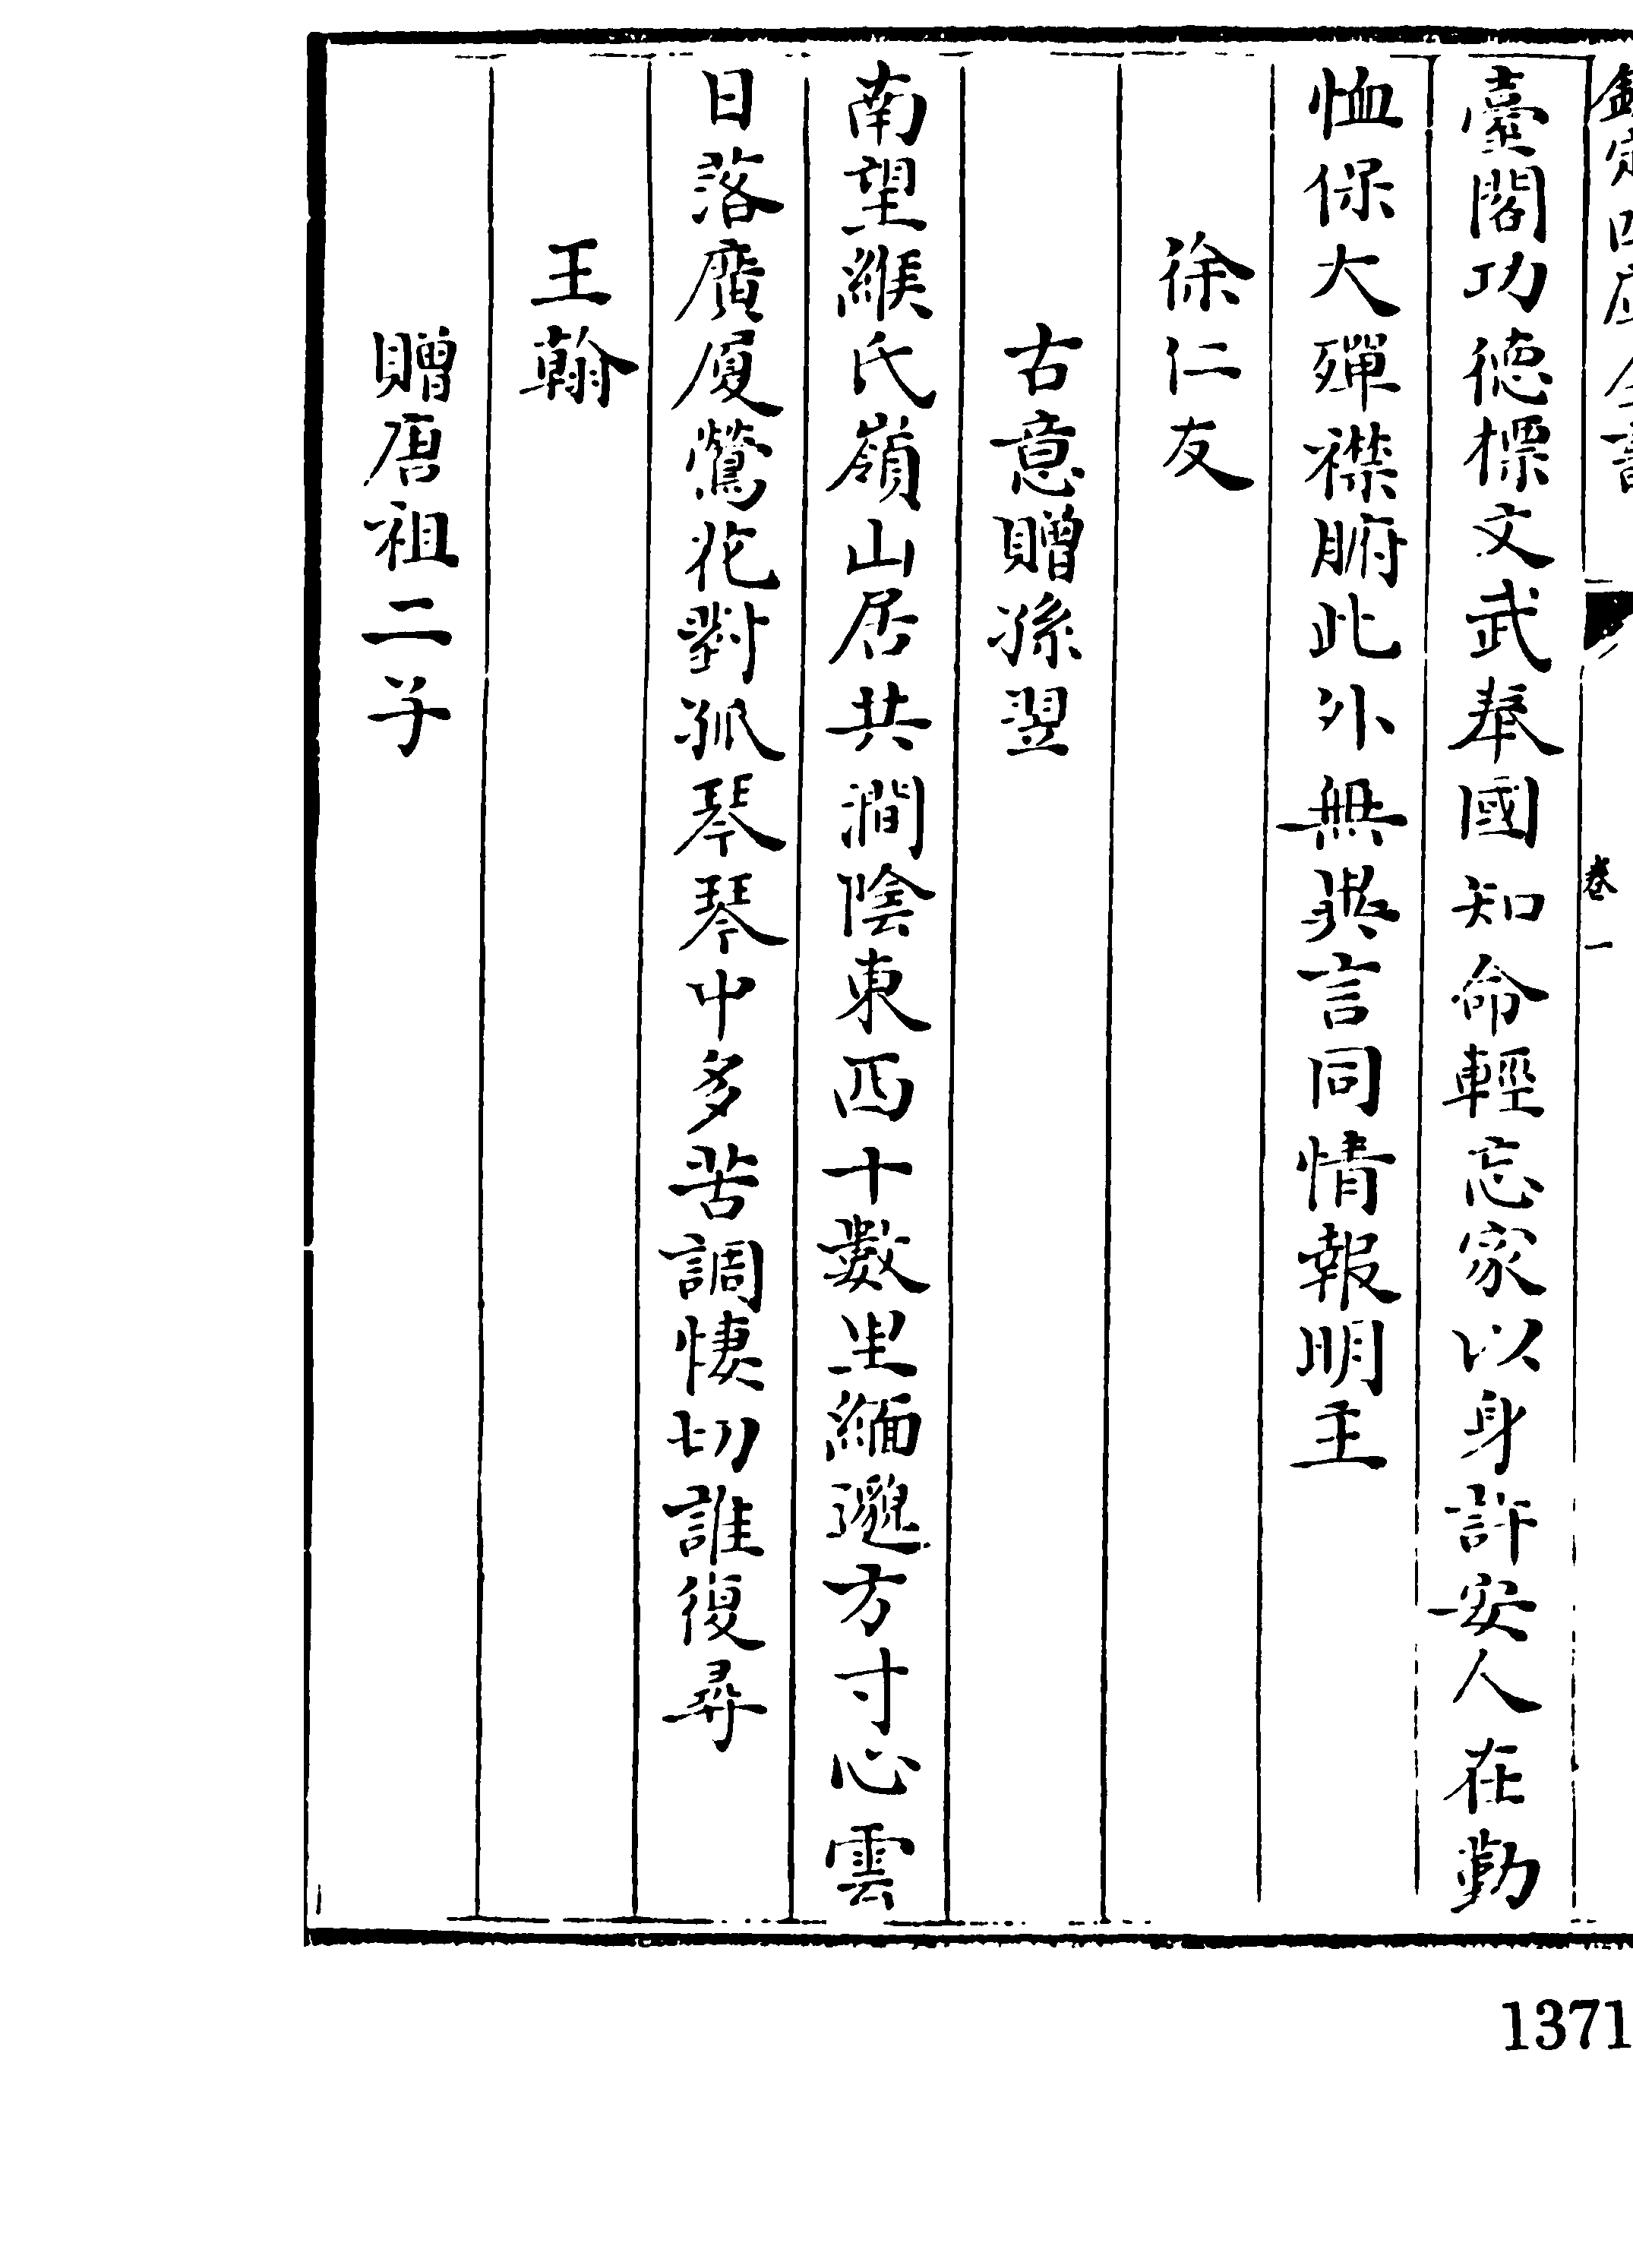 欽定四庫全書 卷一
臺閣功德標文武奉國知命輕忘家以身許安人在勤
恤保大殫襟腑此外無與言同情報明主
徐仁友
古意贈孫翌
南望緱氏嶺山居共澗陰東西十數里緬邈方寸心雲
日落廣厦鶯花對孤琴琴中多苦調悽切誰復尋
王翰
贈唐祖二子
1371